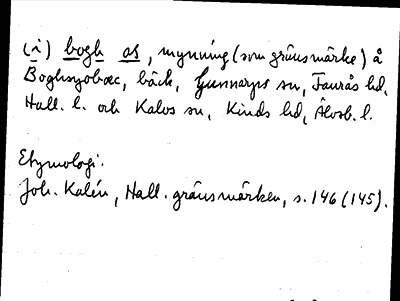 (i) bogh os, mynning (som gränsmärke) å
Boghsyobæc, bäck, Gunnarps sn, Faurås hd,
Hall. l. och Kalvs sn, Kinds hd, Älvsb. l.
Etymologi.
Joh. Kalén, Hall. gränsmärken, s. 146 (145).